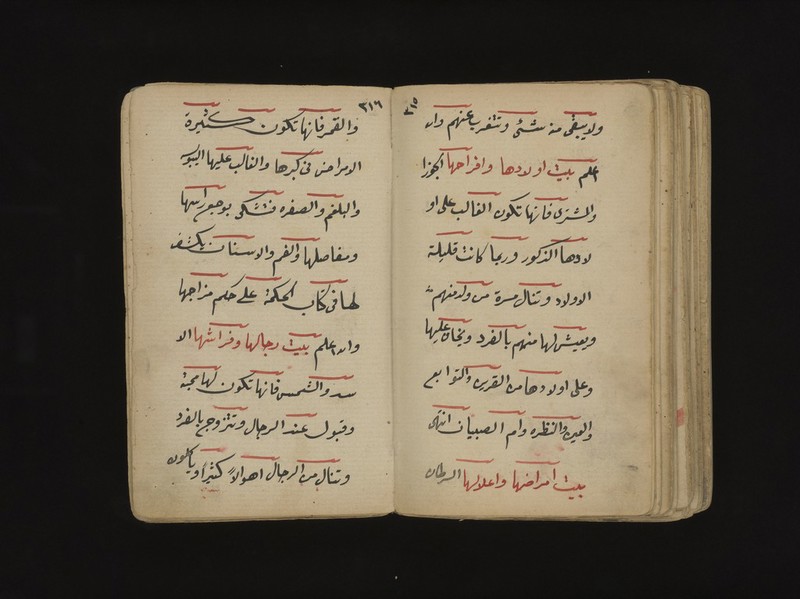 ٢١٥
ولا يبقى منه شئ وتتفرب عنهم وان
اعلم بيت اولادها وافراحها الجوزا
والمشترى فانها تكون الغالب على او
لادها الذكور وربما كانت قليلة
الاولاد وتنال مسرة من ولد منهم
ويعيش لها منهم بالفرد ويخاف عليها
وعلى اولادها من القرين والتوابع
والعين والنظره وام الصبيان انتهى
بيت امراضها واعلالها السرطان
٢١٦
والقمر فانها تكون كثيرة
الامراض فى كبرها والغالب عليها
والبلغم والصفره فتشكى بوجع راسها
ومفاصلها والفم والاسنان يكشف
لها فى كتاب الحكمة على حكم مزاجها
وان اعلم بيت رجالها وفراشها الا
سد والشمس فانها تكون لها محبة
وقبول عند الرجال وتتزوج بالفرد
وتنال من الرجال اهوالاً كثيراً ويأكلون